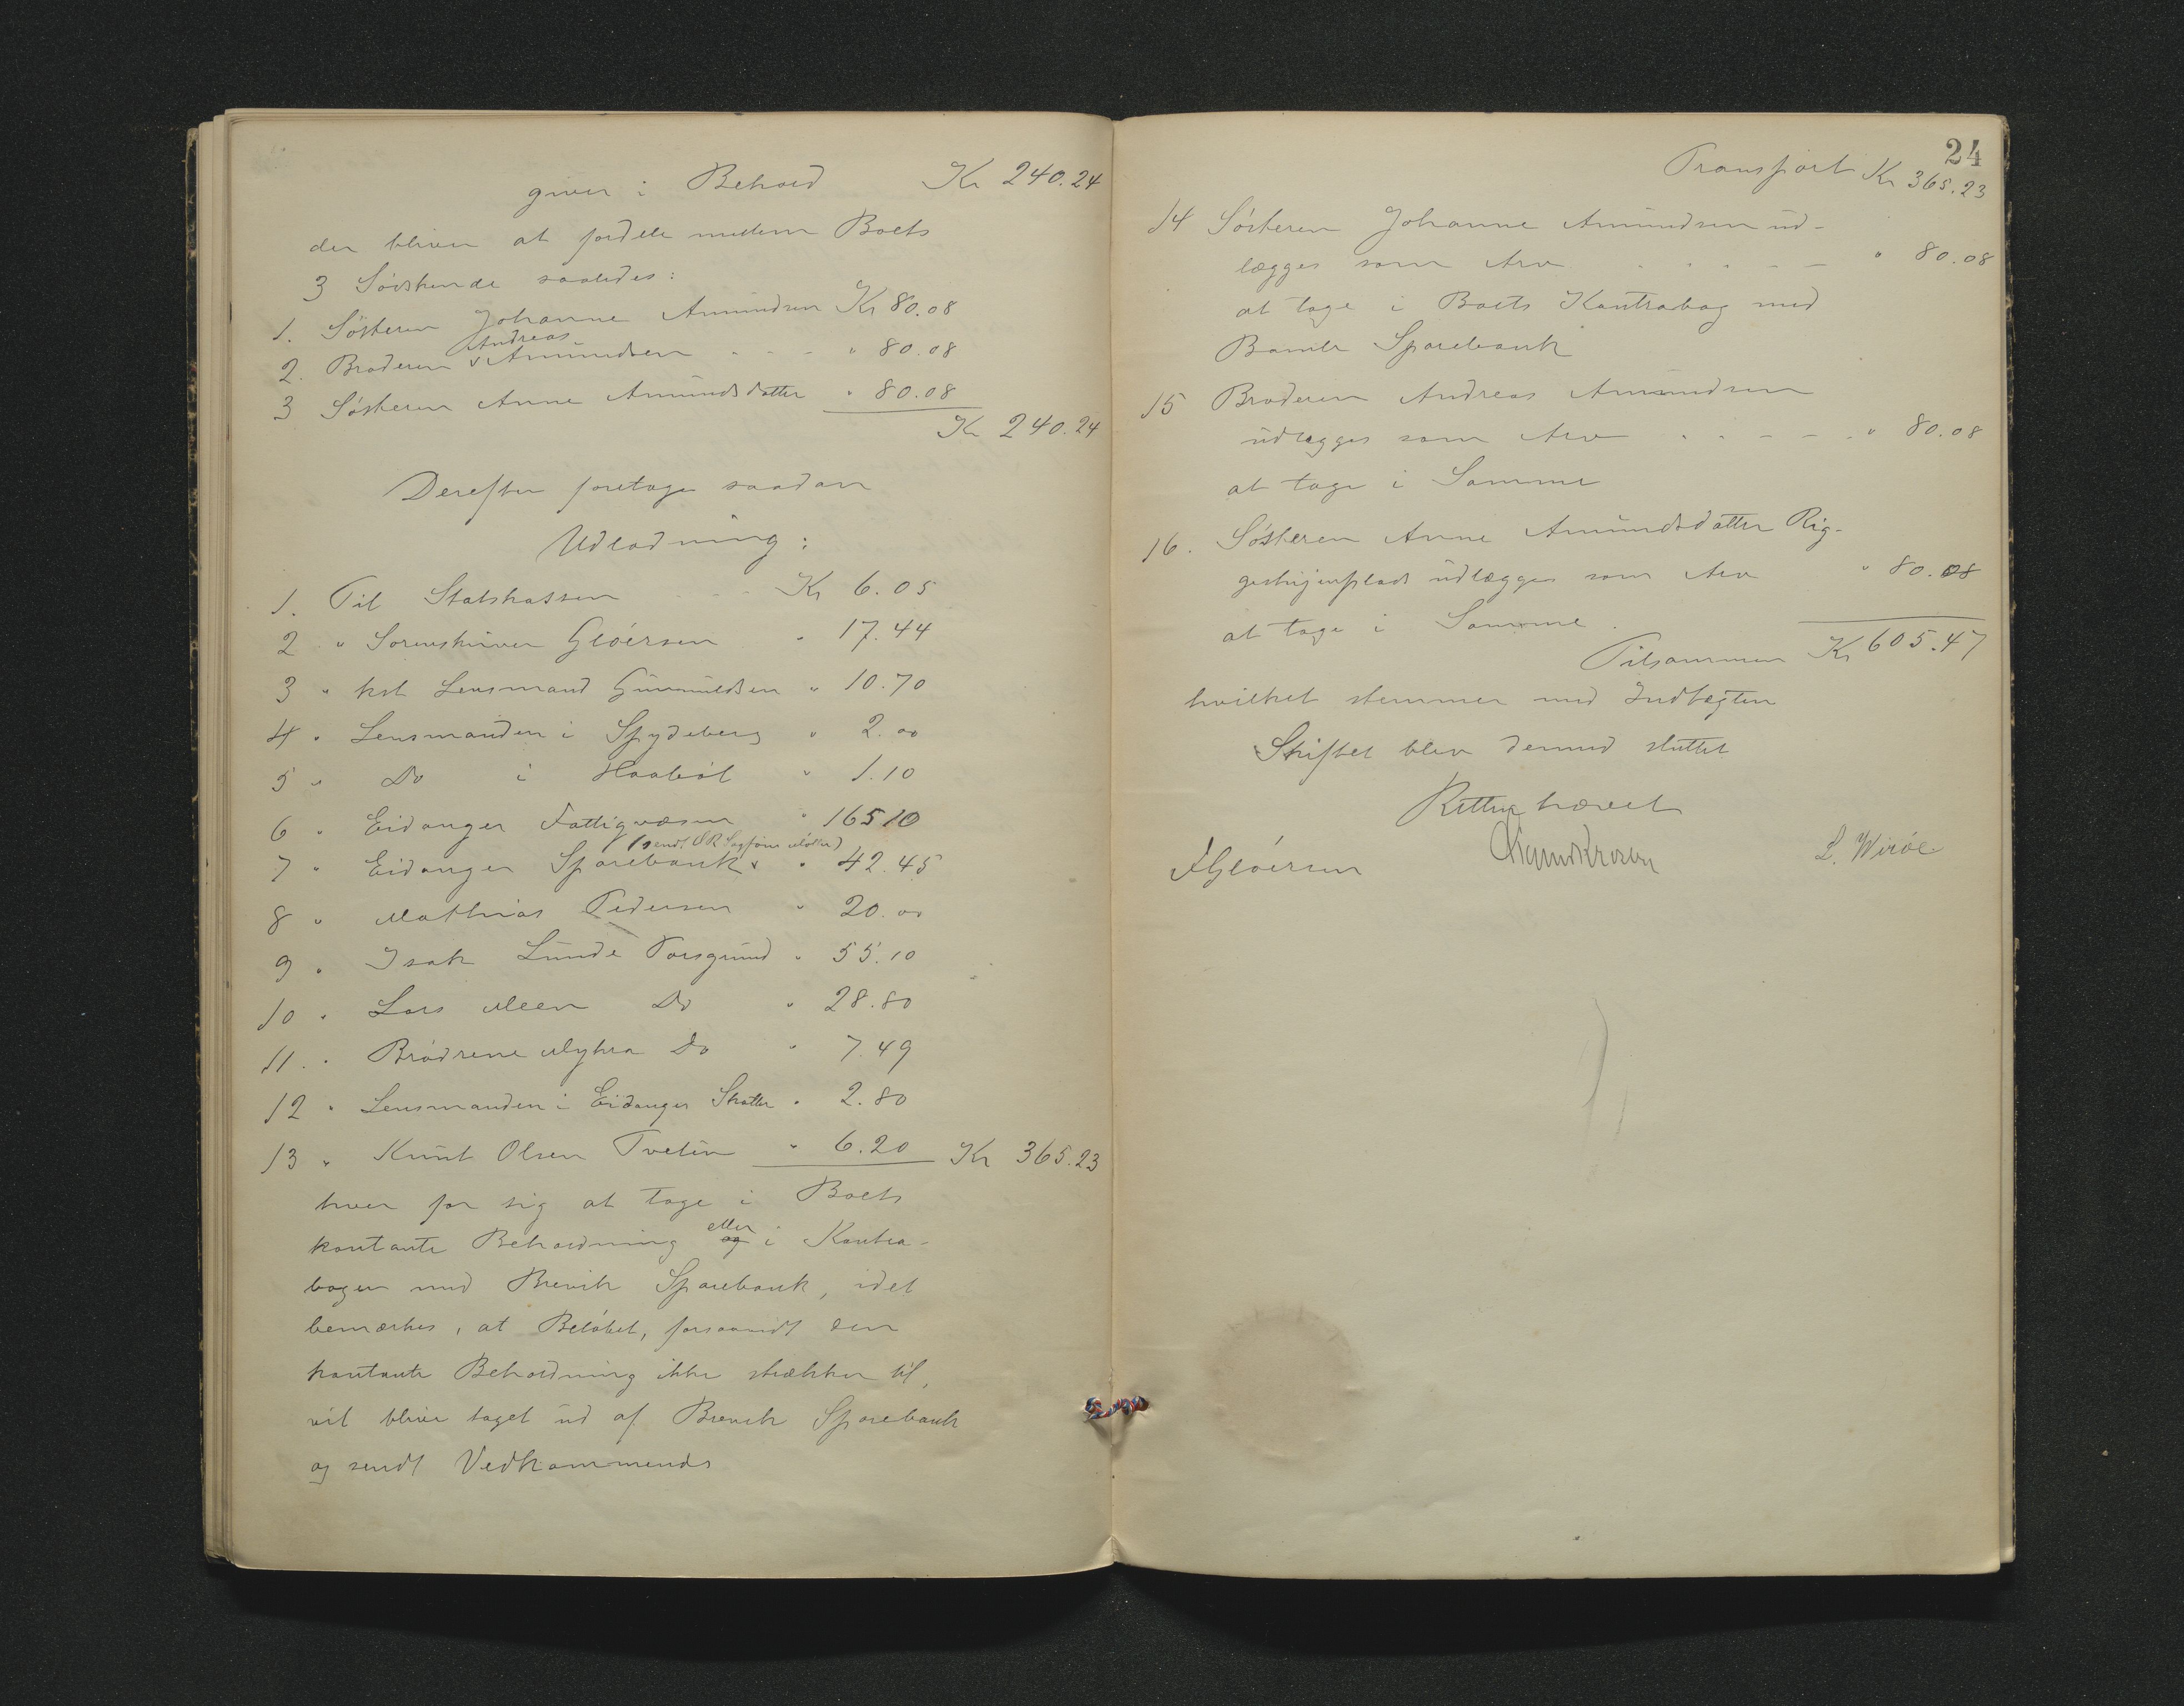 giver i Behold Kr 240.24
der bliver at fordele mellem Boets
3 Södskende saaledes:
1. Sösteren Johanne Amundsen Kr 80.08
Andreas
2. Broderen Amundsen - - - " 80.08
3 Sösteren Anne Amundsdatter " 80.08
Kr 240.24
Derefter foretoges saadan
Udlodning:
1. Til Statskassen - - - Kr 6.05
2 " Sorenskriver Glöersen " 17.44
3 " kst Lensmand Gunnuldsen " 10.70
4 " Lensmanden i Spydeberg " 2.00
5 " Do i Haaböl " 1.10
6 " Eidanger Fattigvæsen " 165.10
(sendt OR Sagförer Möller)
7 " Eidanger Sparebank " 42.45
8 " Mathias Pedersen " 20.00
9 " Isak Lunde Porsgrund " 55.10
10 " Lars Meen Do " 28.80
11. " Brödrene Myhra Do " 7.49
12 " Lensmanden i Eidanger Skatter " 2.80
13 " Knut Olsen Tveten " 6.20 Kr 365.23
hver for sig at tage i Boets
eller
kontante Beholdning og i Kontra-
bogen med Brevik Sparebank, idet
bemærkes, at Belöbet, forsaavidt den
kontante Beholdning ikke strækker til,
vil blive taget ud af Brevik Sparebank
og sendt Vedkommende
24
Transport Kr 365.23
14 Sösteren Johanne Amundsen ud-
lægges som Arv - - - - - " 80.08
at tage i Boets Kontrabog med
Bamle Sparebank
15 Broderen Andreas Amundsen
udlægges som Arv - - - - - " 80.08
at tage i Samme
16. Sösteren Anne Amundsdatter Rig-
udlægges som Arv " 80.08
at tage i Samme.
Tilsammen Kr 605.47
hvilket stemmer med Indtægten
Skiftet blev dermed sluttet
Retten hævet
FGlöersen L. Wiröe